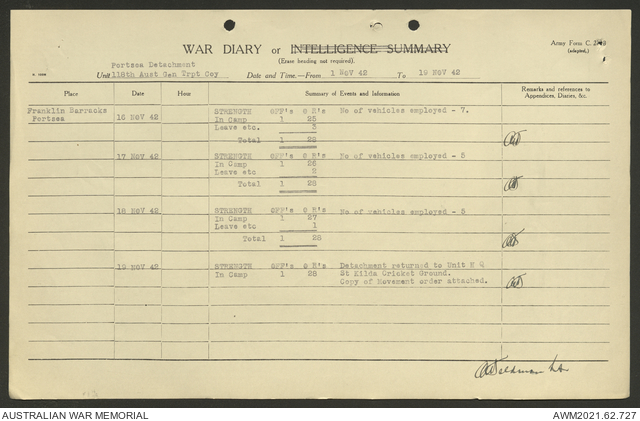 WAR DIARY or INTELLIGENCE SUMMARY
(Erase heading not required).
Army Form C.
(adapted.)
Portsea Detachment
Unit 118th Aust Gen Trpt Coy Date and Time.—From 1 NOV 42 To 19 NOV 42
Place Date Hour Summary of Events and Information Remarks and references to Appendices, Diaries, &c.
Franklin Barracks
Portsea
16 NOV 42
STRENGTH OFF's O R's No of vehicles employed - 7.
In Camp 1 25
Leave etc. 3
Total 1 28
17 NOV 42 STRENGTH OFF's O R's No of vehicles employed - 5
In Camp 1 26
Leave etc 2
Total 1 28
18 NOV 42 STRENGTH OFF's O R's No of vehicles employed - 5
In Camp 1 27
Leave etc 1
Total 1 28
19 NOV 42 STRENGTH OFF's O R's Detachment returned to Unit H Q
In Camp 1 28 St Kilda Cricket Ground.
Copy of Movement order attached.
AUSTRALIAN WAR MEMORIAL AWM2021.62.727